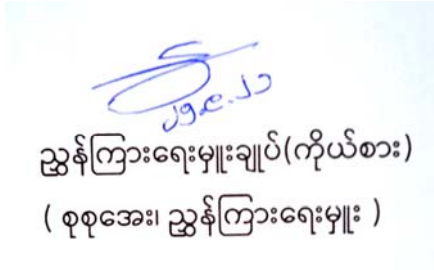 ၂၅.၉.၂၁
ညွှန်ကြားရေးမှူးချုပ်(ကိုယ်စား)
( စုစုအေး၊ ညွှန်ကြားရေးမှူး )